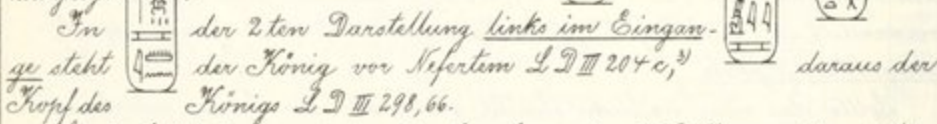 In der 2ten Darstellung links im Eingan-
ge steht der König vor Nefertem L D III 204 c,³) daraus der
Kopf des Königs L D III 298,66.